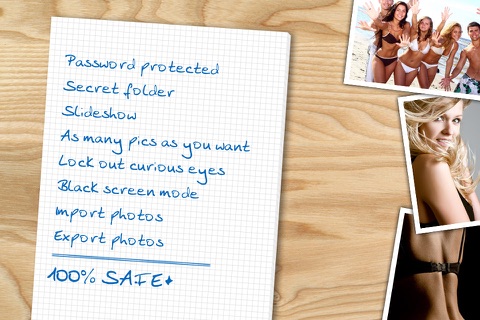 Password protected
Secret folder
Slideshow
As many pics as you want
Lock out curious eyes
Black screen mode
Import photos
Export photos
100% SAFE*